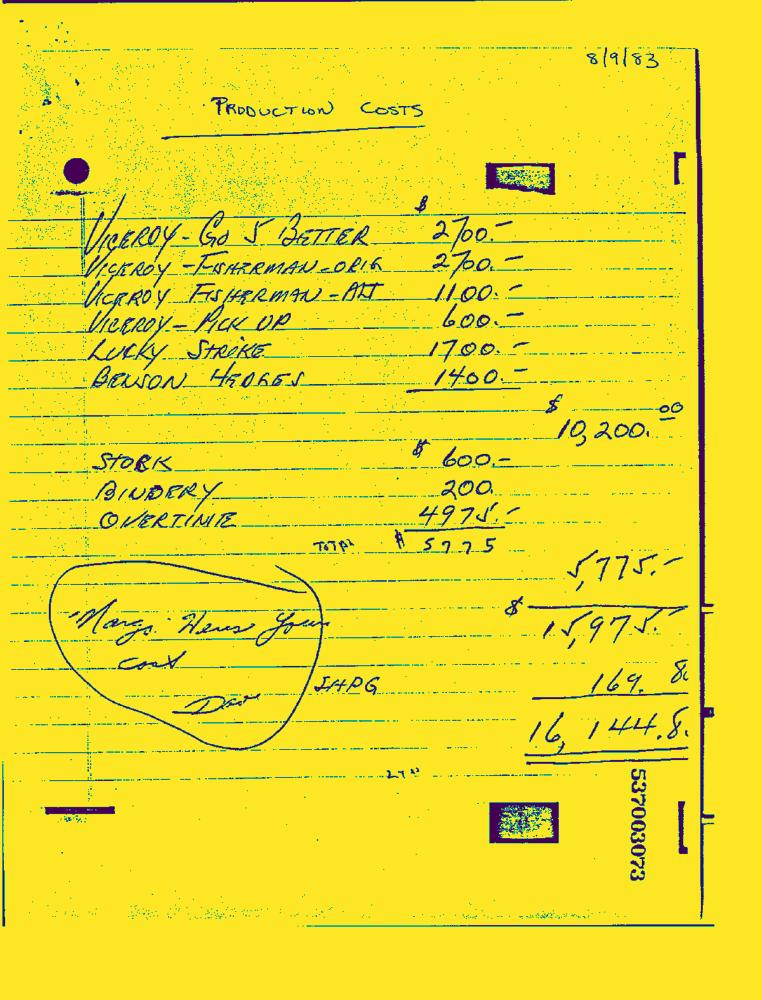 8/9/83
PRODUCTION COSTS
$
VICEROY - GO 5 BETTER 2700.-
VICEROY - FISHERMAN - ORIG 2700.-
VICEROY FISHERMAN - ALT 1100.-
VICEROY - PICK UP 600.-
LUCKY STRIKE 1700.-
BENSON HEDGES 1400.-
$ 10,200.00
STORK $ 600.-
BINDERY 200.
OVERTIME 4975.-
TOTAL $ 5775
5,775.-
$ 15,975.-
Marg. Heres Your
Cost
SHPG 169. 8
16, 144.8
537003073